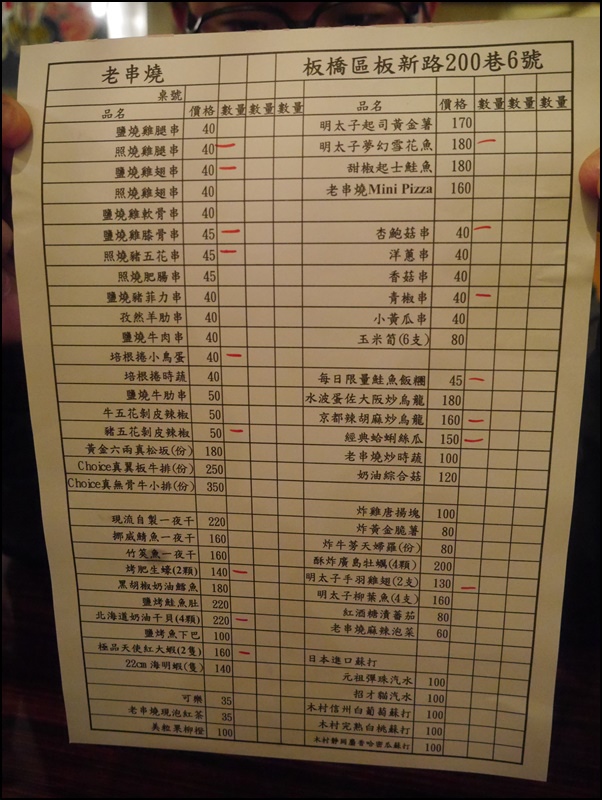 老串燒
桌號
品名 價格 數量 數量 數量
鹽燒雞腿串 40
照燒雞腿串 40
鹽燒雞翅串 40
照燒雞翅串 40
鹽燒雞軟骨串 40
鹽燒雞膝骨串 45
照燒豬五花串 45
照燒肥腸串 45
鹽燒豬菲力串 40
孜然羊肋串 40
鹽燒牛肉串 40
培根捲小鳥蛋 40
培根捲時蔬 40
鹽燒牛肋串 50
牛五花剝皮辣椒 50
豬五花剝皮辣椒 50
黃金六兩真松坂(份) 180
Choice真翼板牛排(份) 250
Choice真無骨牛小排(份) 350
現流自製一夜干 220
挪威鯖魚一夜干 160
竹筴魚一夜干 160
烤肥生蠔(2顆) 140
黑胡椒奶油鱈魚 180
鹽烤鮭魚肚 220
北海道奶油干貝(4顆) 220
鹽烤魚下巴 100
極品天使紅大蝦(2隻) 160
22cm海明蝦(隻) 140
可樂 35
老串燒現泡紅茶 35
美粒果柳橙 100
板橋區板新路200巷6號
品名 價格 數量 數量 數量
明太子起司黃金薯 170
明太子夢幻雪花魚 180
甜椒起士鮭魚 180
老串燒Mini Pizza 160
杏鮑菇串 40
洋蔥串 40
香菇串 40
青椒串 40
小黃瓜串 40
玉米筍(6支) 80
每日限量鮭魚飯糰 45
水波蛋佐大阪炒烏龍 180
京都辣胡麻炒烏龍 160
經典蛤蜊絲瓜 150
老串燒炒時蔬 100
奶油綜合菇 120
炸雞唐揚塊 100
炸黃金脆薯 80
炸牛蒡天婦羅(份) 80
酥炸廣島牡蠣(4顆) 200
明太子手羽雞翅(2支) 130
明太子柳葉魚(4支) 160
紅酒糖漬蕃茄 80
老串燒麻辣泡菜 60
日本進口蘇打
元祖彈珠汽水 100
招才貓汽水 100
木村信州白葡萄蘇打 100
木村完熟白桃蘇打 100
木村靜岡麝香哈密瓜蘇打 100